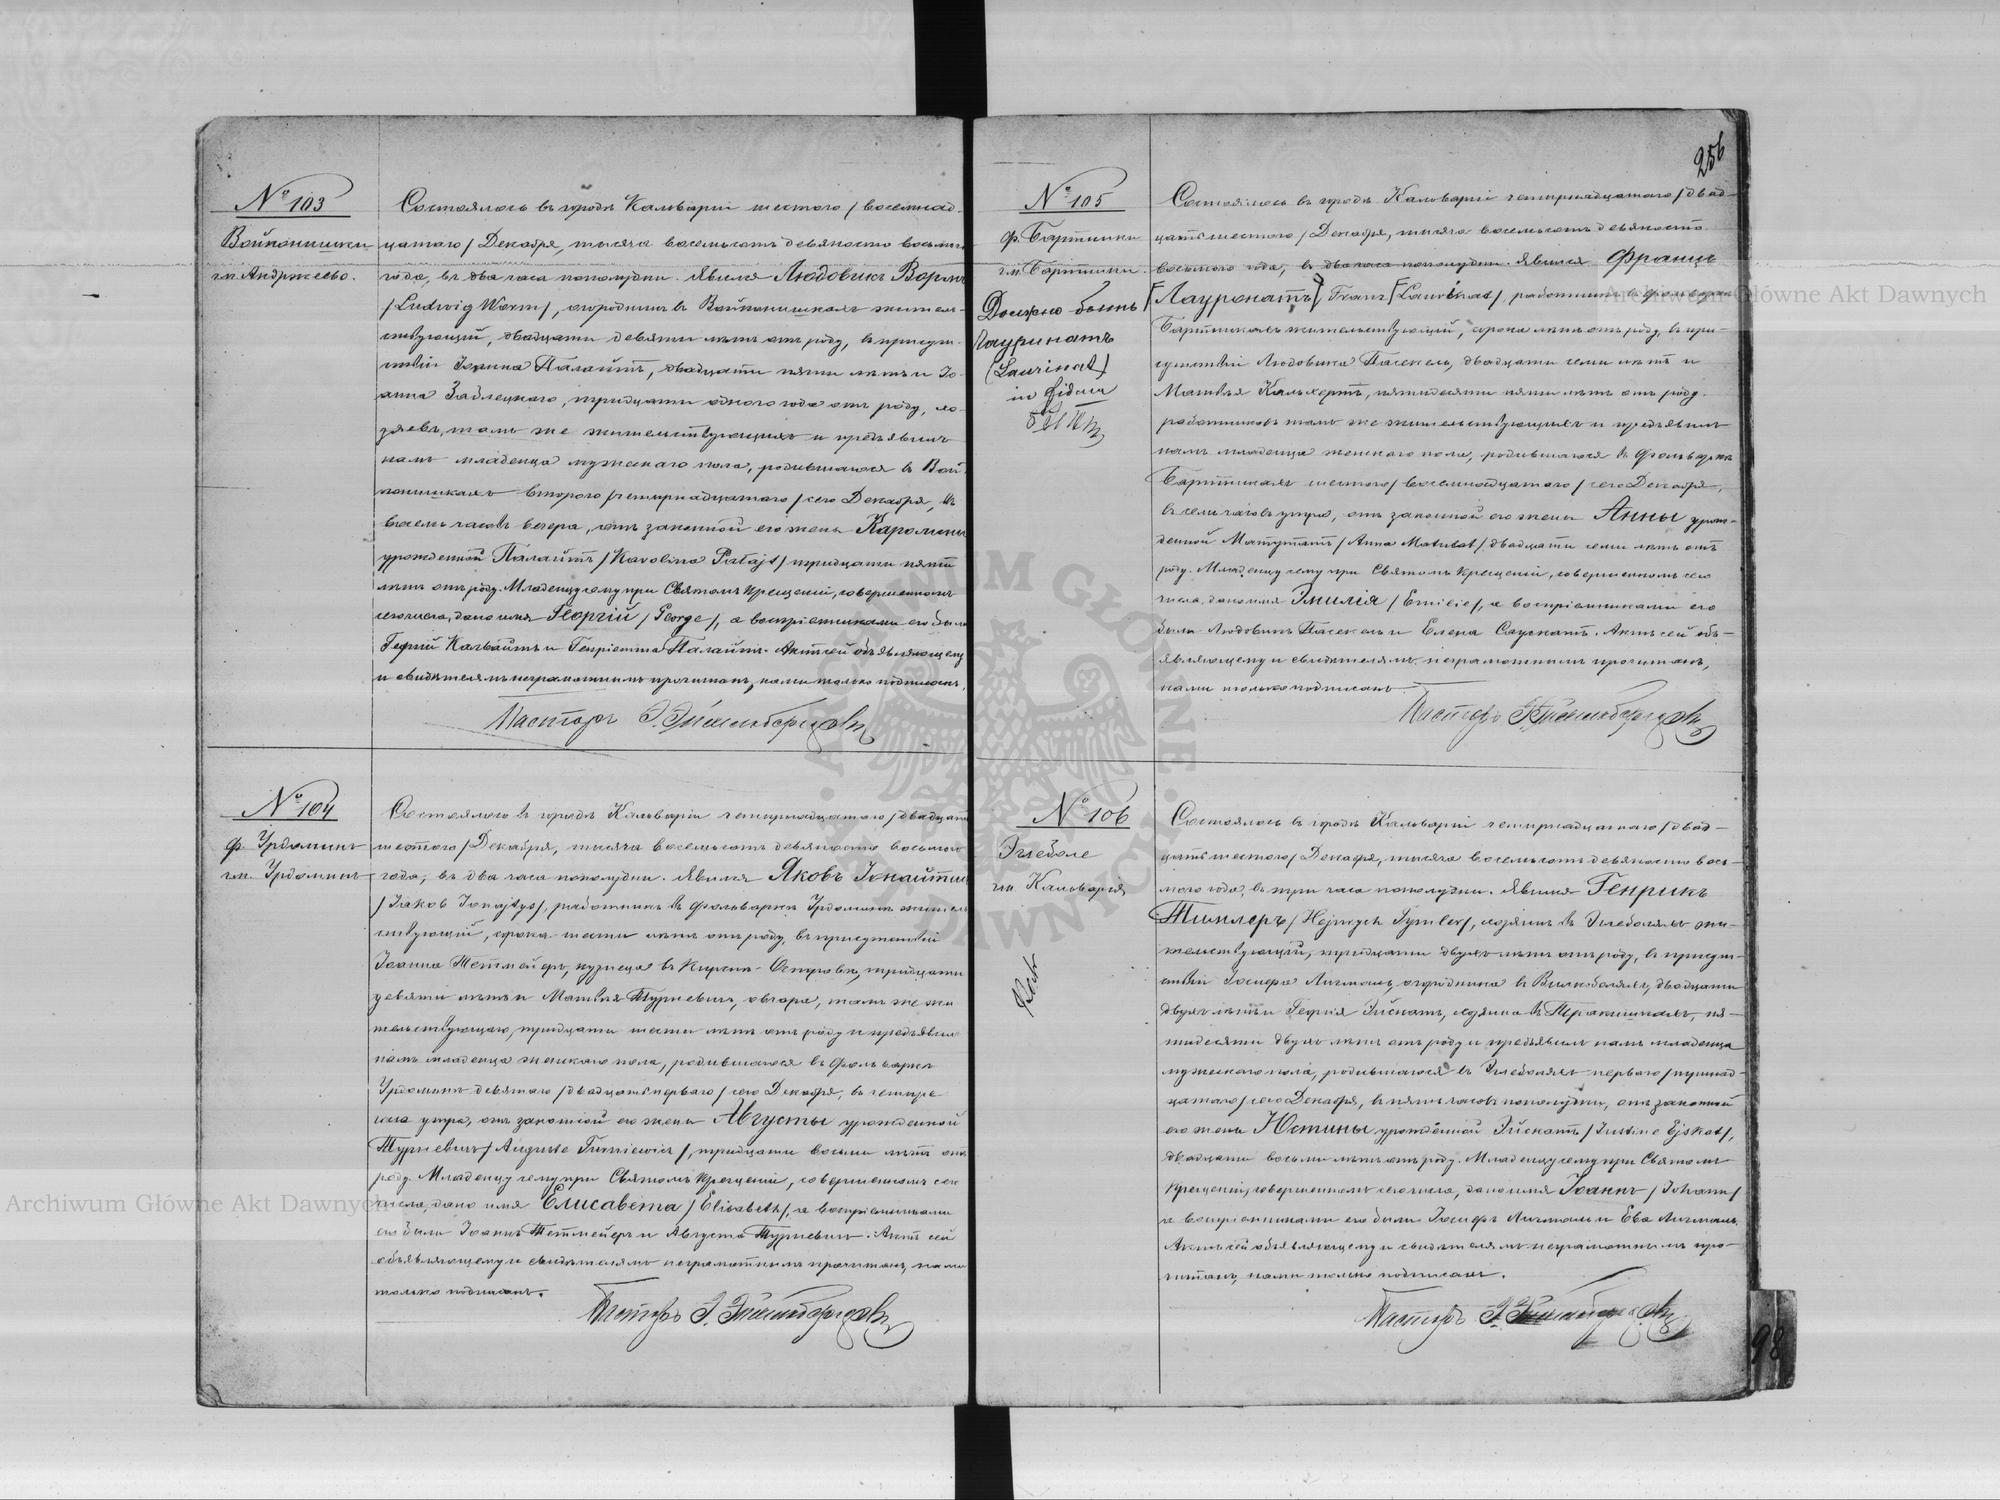 № 103
Войпонишки
гм. Андржеево.
Состоялось въ городѣ Кальваріи шестого / восемнад-
цатаго / Декабря, тысяча восемьсотъ девяносто восьмого
года, въ два часа пополудни. Явился Людовикъ Вормъ
/ Ludwig Worm /, огородникъ въ Войпонишкахъ житель-
ствующій, двадцати девяти лѣтъ отъ роду, въ присут-
ствіи Палайтъ, двадцати пяти лѣтъ и Іо-
анна Задлецкого, тридцати одного года отъ роду, хо-
зяевъ, тамъ же жительствующихъ и предъявилъ
намъ младенца мужескаго пола, родившагося въ Вой-
понишкахъ второго / четырнадцатаго / сего Декабря, въ
восемь часовъ вечера, отъ законной его жены Каролины
урожденной Палайтъ / Karolina Patajt / тридцати пяти
лѣтъ отъ роду. Младенцу сему при Святомъ Крещеніи, совершенномъ
сего числа, дано имя Георгій / George /, а воспріемниками его были
Георгій Калвайтъ и Генріетта Палайтъ. Актъ сей объявляющему
и свидѣтелямъ неграмотнымъ прочитанъ, нами только подписанъ.
Пасторъ
№ 104
ф. Урдоминъ
гм. Урдоминъ
Состоялось въ городѣ Кальваріи четырнадцатаго / двадцать
шестого / Декабря, тысяча восемьсотъ девяносто восьмого
года, въ два часа пополудни. Явился Яковъ Іонайтисъ
/ Jakob Jonajtys /, работникъ въ фольваркѣ Урдоминъ житель-
ствующій, сорока шести лѣтъ отъ роду, въ присутствіи
Іоанна Тетмейеръ, кузнеца въ тридцати
девяти лѣтъ и Матвѣя Турневичъ, овчара, тамъ же жи-
тельствующаго, тридцати шести лѣтъ отъ роду и предъявилъ
намъ младенца женскаго пола, родившагося въ фольваркѣ
Урдоминъ девятаго / двадцать перваго / сего Декабря, въ четыре
часа утра, отъ законной его жены Августы урожденной
Турневичъ / Auguste Turniewicz /, тридцати восьми лѣтъ отъ
роду. Младенцу сему при Святомъ Крещеніи, совершенномъ сего
числа, дано имя Елисавета / Elisabeth /, а воспріемниками
его были Іоаннъ Тетмейеръ и Августа Турневичъ. Актъ сей
объявляющему и свидѣтелямъ неграмотнымъ прочитанъ, нами
только подписанъ.
Пасторъ
256
№ 105
ф. Бартники
гм. Бартники.
Должно быть
Лауринатъ
(Laurinat)
in fidem
Состоялось въ городѣ Кальваріи четырнадцатаго / двад-
цать шестого / Декабря, тысяча восемьсотъ девяносто
восьмого года, въ два часа пополудни. Явился Францъ
Лауронатъ / Franz Laurinat /, работникъ въ фольваркѣ
Бартникахъ жительствующій, сорока лѣтъ отъ роду, въ при-
сутствіи Людовика Пасекель, двадцати семи лѣтъ и
Матвѣя Кальхертъ, пятидесяти пяти лѣтъ отъ роду,
работниковъ тамъ же жительствующихъ и предъявилъ
намъ младенца женскаго пола, родившагося въ фольваркѣ
Бартникахъ шестого / восемнадцатаго / сего Декабря,
въ семь часовъ утра, отъ законной его жены Анны урож-
денной Матулатъ / Anna Matulat / двадцати семи лѣтъ отъ
роду. Младенцу сему при Святомъ Крещеніи, совершенномъ сего
числа, дано имя Эмилія / Emilie /, а воспріемниками его
были Людовикъ Пасекель и Елена Саускатъ. Актъ сей объ-
являющему и свидѣтелямъ неграмотнымъ прочитанъ,
нами только подписанъ.
Пасторъ
№ 106
Эглеболе
гм. Кальварія
Состоялось въ городѣ Кальваріи четырнадцатаго / двад-
цать шестого / Декабря, тысяча восемьсотъ девяносто вось-
мого года, въ три часа пополудни. Явился Генрихъ
Тимлеръ / Hejnrych Tymler /, хозяинъ въ Эглеболяхъ жи-
тельствующій, тридцати двухъ лѣтъ отъ роду, въ присут-
ствіи Іосифа Лигмаль, огородника въ двадцати
двухъ лѣтъ и Георгія Эйскатъ, хозяина въ Тракишкахъ, пя-
тидесяти двухъ лѣтъ отъ роду и предъявилъ намъ младенца
мужескаго пола, родившагося въ Эглеболяхъ перваго / тринад-
цатаго / сего Декабря, въ пять часовъ пополудни, отъ законной
его жены Юстины урожденной Эйскатъ / Justine Ejskat /,
двадцати восьми лѣтъ отъ роду. Младенцу сему при Святомъ
Крещеніи, совершенномъ сего числа, дано имя Іоаннъ / Johann /
а воспріемниками его были Іосифъ Лигмаль и Ева Лигмаль.
Актъ сей объявляющему и свидѣтелямъ неграмотнымъ про-
читанъ, нами только подписанъ.
Пасторъ
98
Archiwum Główne Akt Dawnych
Archiwum Główne Akt Dawnych
ARCHIWUM GŁÓWNE AKT DAWNYCH